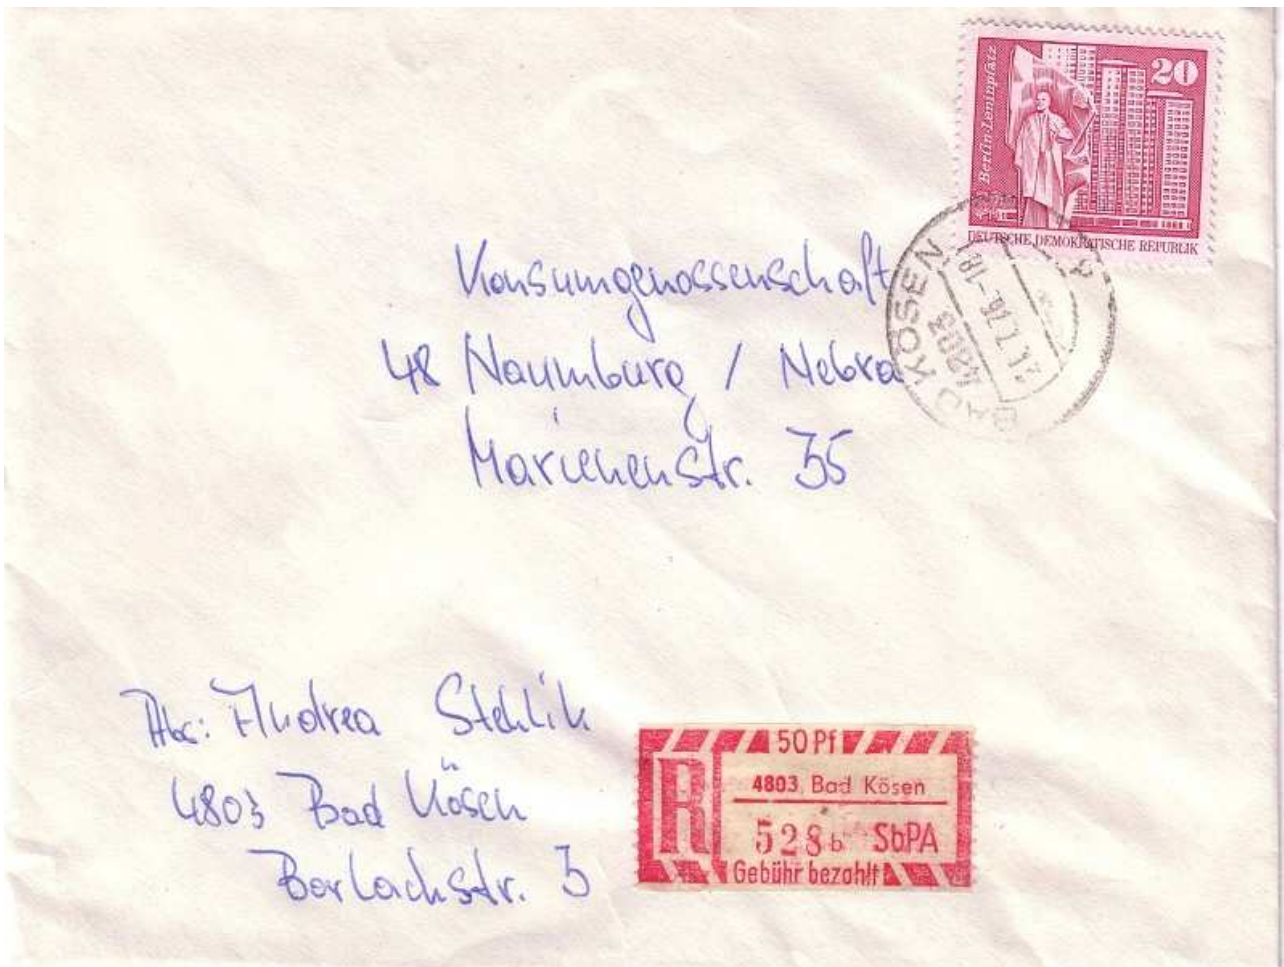 Berlin-Leninplatz
20
DEUTSCHE DEMOKRATISCHE REPUBLIK
BAD KÖSEN
4803
21.7.76-18
Konsumgenossenschaft
48 Naumburg / Nebra
Marienenstr. 35
Abs: Andrea Stehlik
4803 Bad Kösen
Borlachstr. 3
50 Pf
R
4803 Bad Kösen
528 b SbPA
Gebühr bezahlt